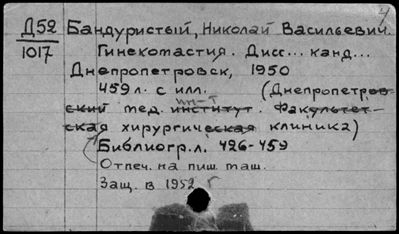 Д52 Бандуристый, Николай Васильевич.
1017 Гинекомастия. Дисс... канд...
Днепропетровск, 1950
459 л. с илл. (Днепропетров-
ский мед. институт. Факультет-
ин-т
ская хирургическая клиника)
Библиогр. л. 426-459
Отпеч. на пиш. маш.
Защ. в 1952 г